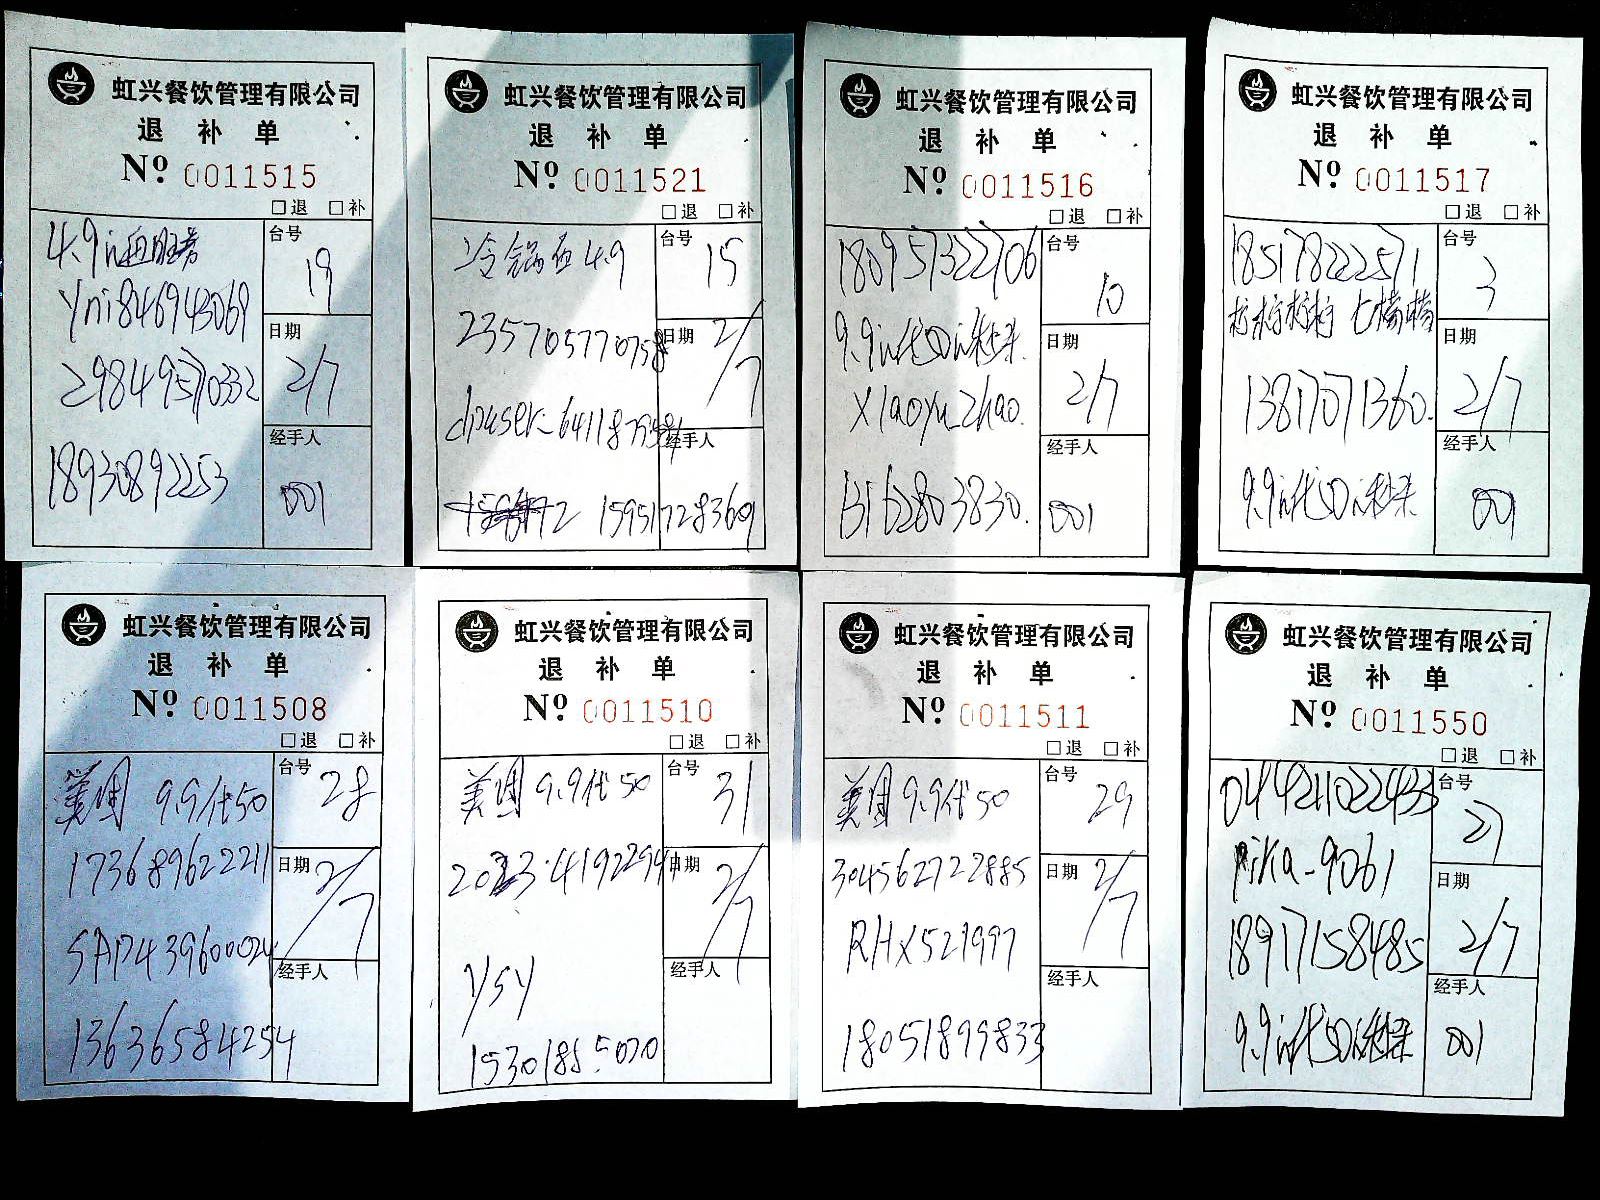 虹兴餐饮管理有限公司
退 补 单
Nº 0011515
□退 □补
4.9元
台号
19
yni846943069
日期
2/7
298495710332
经手人
18930892253
001
虹兴餐饮管理有限公司
退 补 单
Nº 0011521
□退 □补
冷锅鱼 4.9
台号
15
235705770758
日期
2/7
dpuser-64118
经手人
15951728360
虹兴餐饮管理有限公司
退 补 单
Nº 0011516
□退 □补
180957322706
台号
10
9.9元代50元秒杀
日期
2/7
xiaoyu_zhao.
经手人
13162803830.
001
虹兴餐饮管理有限公司
退 补 单
Nº 0011517
□退 □补
185178222571
台号
3
柠柠柠柠 七檬檬
日期
2/7
13817071360.
经手人
9.9元代50元秒杀
001
虹兴餐饮管理有限公司
退 补 单
Nº 0011508
□退 □补
美团 9.9代50
台号
28
173689622211
日期
2/7
经手人
13636584254
虹兴餐饮管理有限公司
退 补 单
Nº 0011510
□退 □补
美团 9.9代50
台号
31
日期
2/7
ysy
经手人
15301885070
虹兴餐饮管理有限公司
退 补 单
Nº 0011511
□退 □补
美团 9.9代50
台号
29
304562722885
日期
2/7
RHX521997
经手人
18051899833
虹兴餐饮管理有限公司
退 补 单
Nº 0011550
□退 □补
044211022433
台号
27
pika-9061
日期
2/7
18917158485
经手人
9.9元代50元秒杀
001